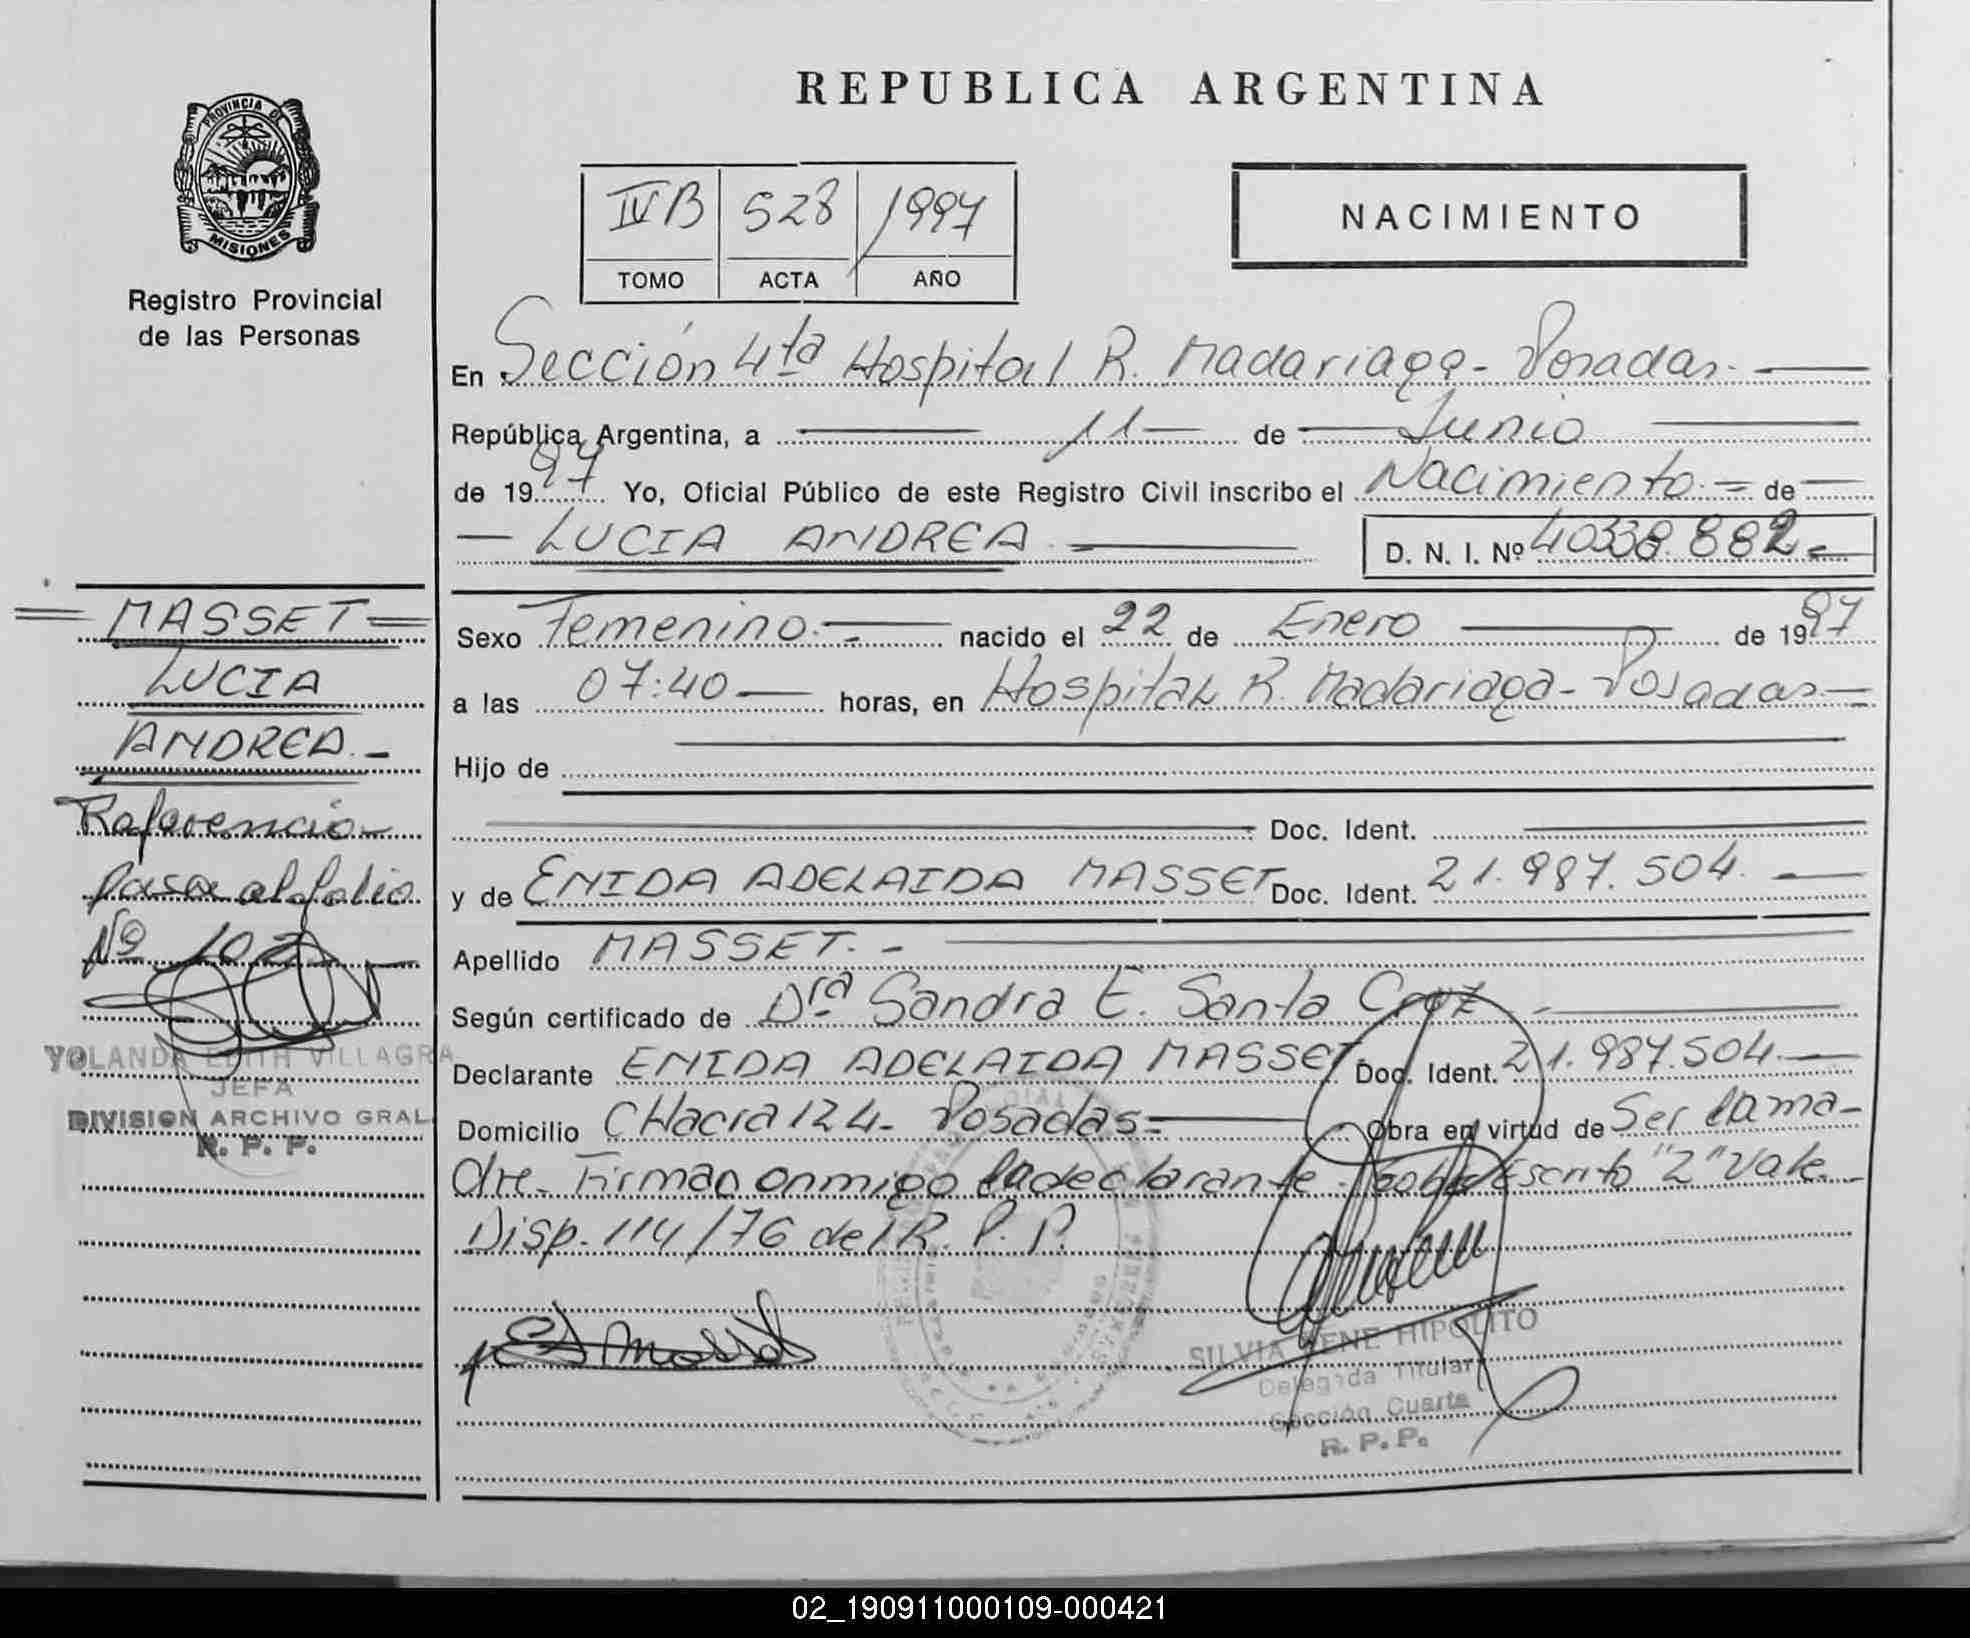 REPUBLICA ARGENTINA
PROVINCIA DE
MISIONES
Registro Provincial
de las Personas
IV B 528 1997
TOMO ACTA AÑO
NACIMIENTO
En Sección 4ta Hospital R. Madariaga - Posadas.
República Argentina, a 11 de Junio
de 1997 Yo, Oficial Público de este Registro Civil inscribo el Nacimiento de
LUCIA ANDREA
D. N. I. Nº 40338.882
Sexo Femenino.- nacido el 22 de Enero de 1997
a las 07:40 horas, en Hospital R. Madariaga - Posadas
Hijo de
Doc. Ident.
y de ENIDA ADELAIDA MASSET Doc. Ident. 21.987.504.
Apellido MASSET. -
Según certificado de Dra Sandra E. Santa Cruz
Declarante ENIDA ADELAIDA MASSET Doc. Ident. 21.987.504.
Domicilio CHacra 124. Posadas Obra en virtud de Ser la ma-
dre. Firman conmigo la declarante. Sobre Escrito "2" Vale
Disp. 114/76 del R. P. P.
SILVIA IRENE HIPOLITO
Delegada Titular
Sección Cuarta
R. P. P.
MASSET
LUCIA
ANDREA.-
Referencia
pasa al folio
Nº 102
YOLANDA EDITH VILLAGRA
JEFA
DIVISION ARCHIVO GRAL
R. P. P.
02_190911000109-000421